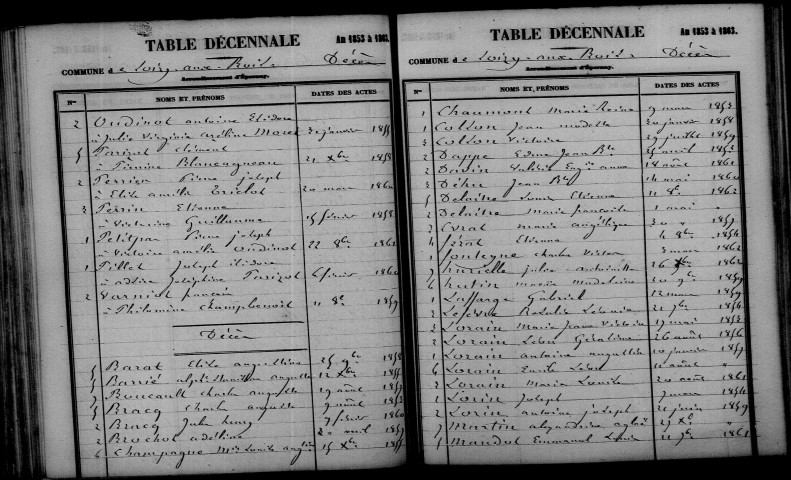 TABLE DÉCENNALE
An 1853 à 1863.
COMMUNE de Loisy-aux-Bois Décès
Arrondissement d'Épernay.
Nos NOMS ET PRÉNOMS DATES DES ACTES
2 Oudinot antoine Elidore
à Julie Virginie Moret 31 janvier 1855
5 Parizot Clément
à 21 Xbre 1858
2 Perrier Pierre joseph
à Elisa amélie 20 mars 1860
3 Perrin Etienne
à Victorine Guillaume 15 février 1858
1 Petitjean Pierre joseph
à Victoire amélie Oudinot 22 8bre 1862
1 Pillet Joseph Elidore
à Joséphine Parizot 6 février 1860
2 Varniot
à Philomène Champbenoit 11 8e 1859
Décès
5 Barat Elise augustine 25 9bre 1858
Barrié augustin 12 Xbre 1855
Boucault charles auguste 19 août 1857
5 Bracq Charles auguste 9 août 1853
2 Bracq Jules henry 7 février 1860
2 Brochot adeline 20 avril 1857
6 Champagne Mie Louise 15 Xbre 1855
TABLE DÉCENNALE
An 1853 à 1863.
COMMUNE de Loisy-aux-Bois Décès
Arrondissement d'Épernay.
Nos NOMS ET PRÉNOMS DATES DES ACTES
1 Chaumont Marie Reine 9 mars 1853
1 Colson Jean modeste 30 janvier 1858
3 Colson Victoire 29 juillet 1859
2 Dappe Edme Jean Bte avril 1853
2 Davin anna 18 août 1861
3 Jean Bte 14 mai 1860
5 Delaitre Louis Etienne 11 8e 1862
2 Delaitre Marie françoise 1 mai "
2 marie angélique 30 " 1857
4 Etienne 4 8bre 1854
1 Jonteyne charles Victor 3 mars 1862
7 julie antoinette 26 Xbre 1862
6 hutin marie Madeleine 20 9bre 1859
1 Laffarge Gabriel 12 mars 1859
2 Lefèvre Rosalie 21 7bre 1856
3 Lorain Marie jeanne Victoire 17 mai 1853
2 Lorain Géraldine 26 août 1856
1 Lorain antoine augustin 10 janvier 1857
6 Lorain Emile 11 août "
3 Lorain Maria Louise 20 août 1862
1 Lorin Joseph 7 mars 1854
2 Lorin antoine joseph 21 juin 1859
7 Martin alexandrine aglaé 27 Xbre "
5 Maudot Emmanuel Louis 11 7bre 1861